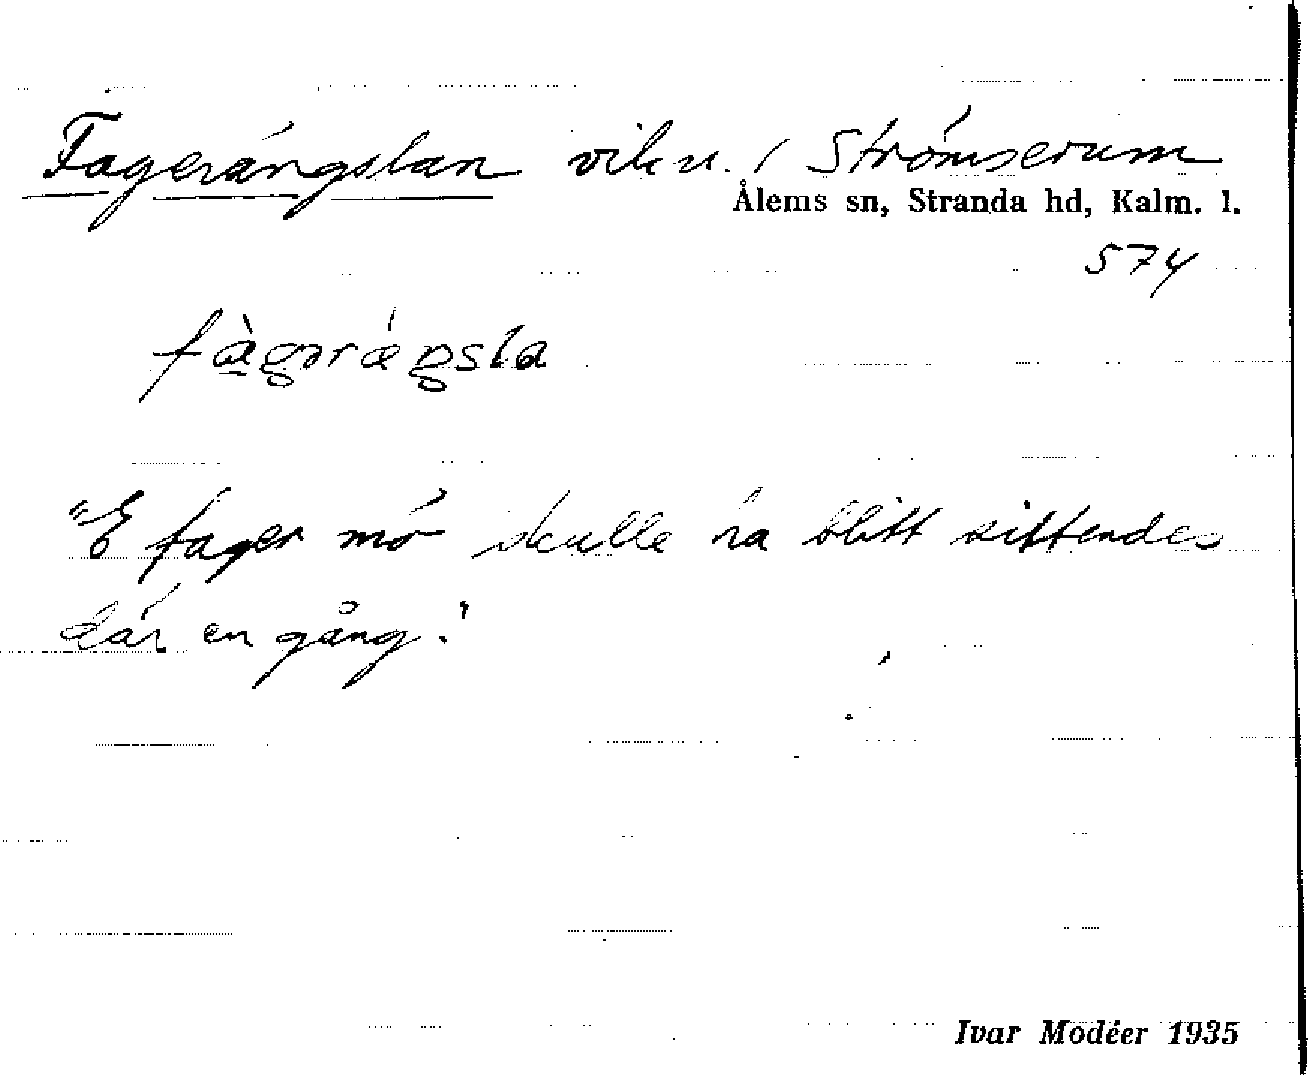 Fagerängslan vik u. / Strömserum
Ålems sn, Stranda hd, Kalm. l.
574
"E fager mö skulle ha blitt sittendes
där en gång."
Ivar Modéer 1935